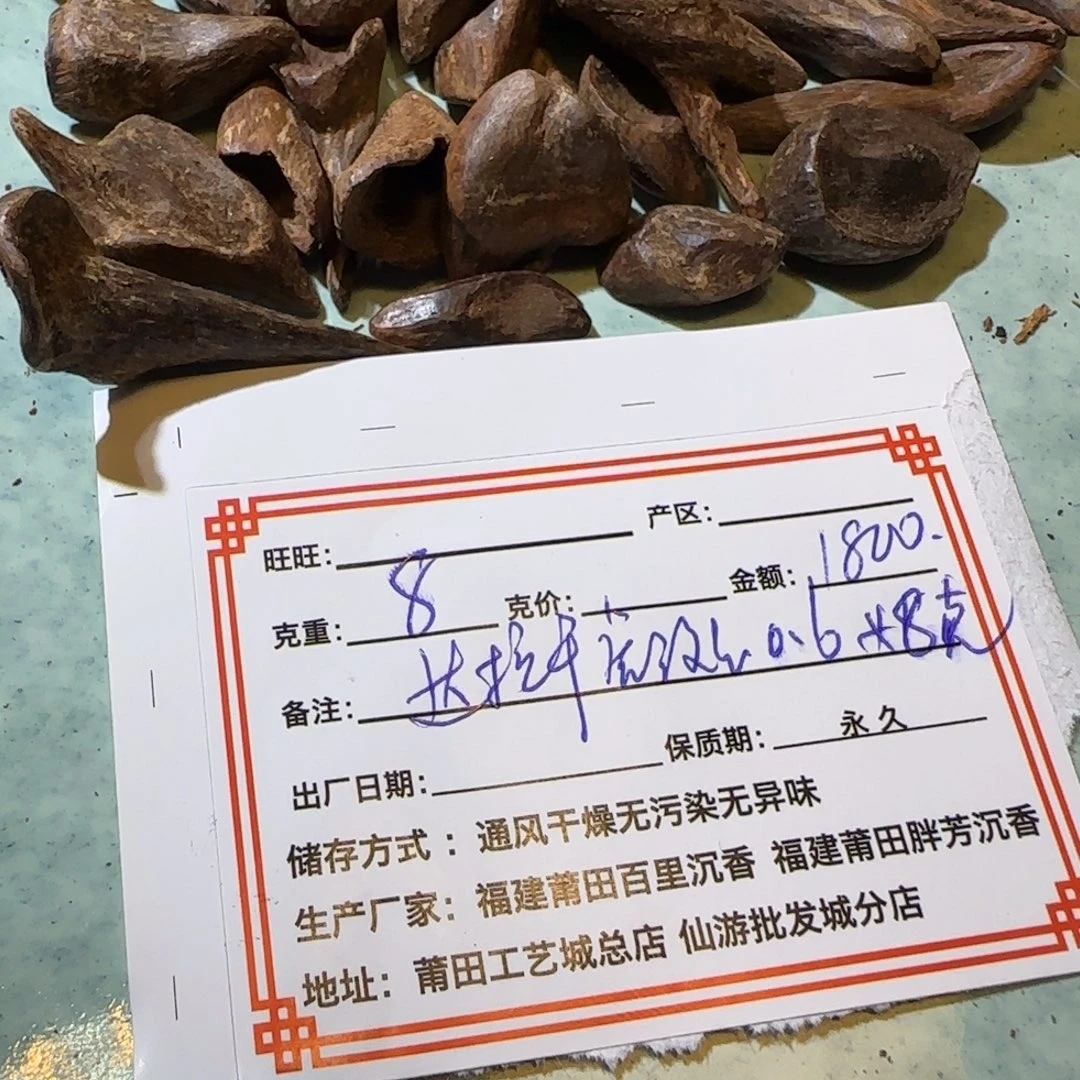 旺旺: 产区:
克重: 8 克价: 金额: 1800.
备注: 达拉干 0.6 克
出厂日期: 保质期: 永久
储存方式：通风干燥无污染无异味
生产厂家：福建莆田百里沉香 福建莆田胖芳沉香
地址：莆田工艺城总店 仙游批发城分店